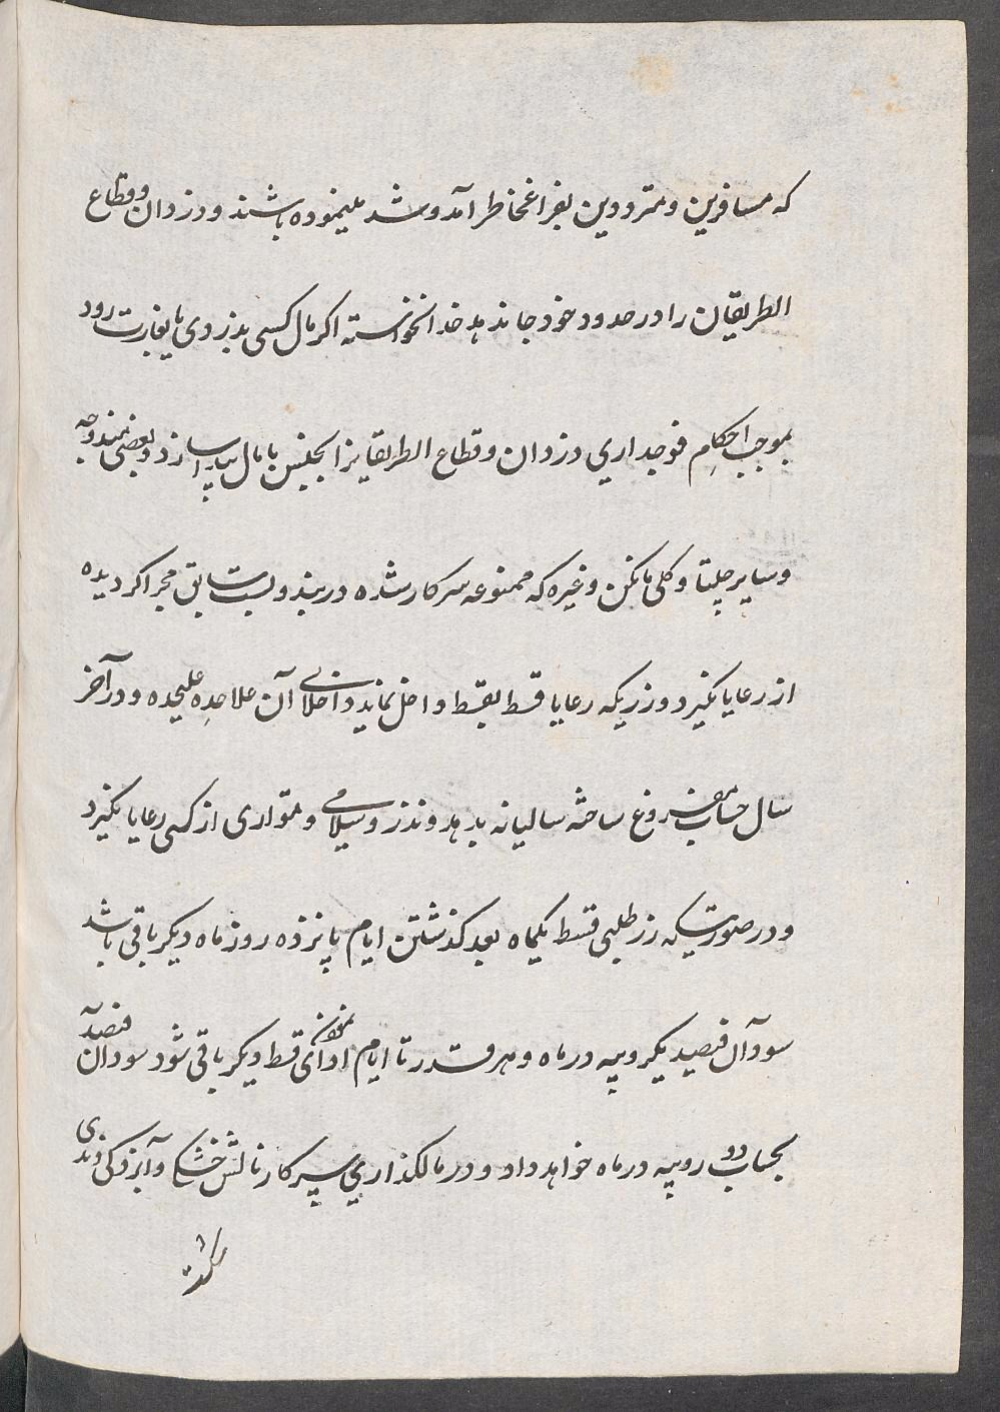 که مسافرین و مترددین بفراغخاطر آمد و شد مینموده باشند و دزدان و قطاع
الطریقان را در حدود خود جا ندهد خدا نخواسته اکر مال کسی بدزدی یا بغارت رود
بموجب احکام فوجداری دزدان و قطاع الطریقانرا بجنس با مال پیدا سازد و بعضی
و سایر چلپتا و کلی بانکن و غیره که ممنوعه سرکار شده در بند و بست سابق مجرا کردیده
از رعایا نکیرد و زریکه رعایا قسط بقسط داخل نماید داخلای آن علاحده علیحده و در آخر
سال حساب مفروغ ساخته سالیانه بدهد و نذر و سلامی و متواری از کسی رعایا نکیرد
و در صورتیکه زر طلبی قسط یکماه بعد کذشتن ایام پانزده روز ماه دیکر باقی باشد
سود آن فیصد یکروپیه در ماه و هر قدر تا ایام ادای قسط دیکر باقی شود سود آن فیصد
بحساب دو روپیه در ماه خواهد داد و در مالکذاری سرکار نالش خشکی و آبزدکی